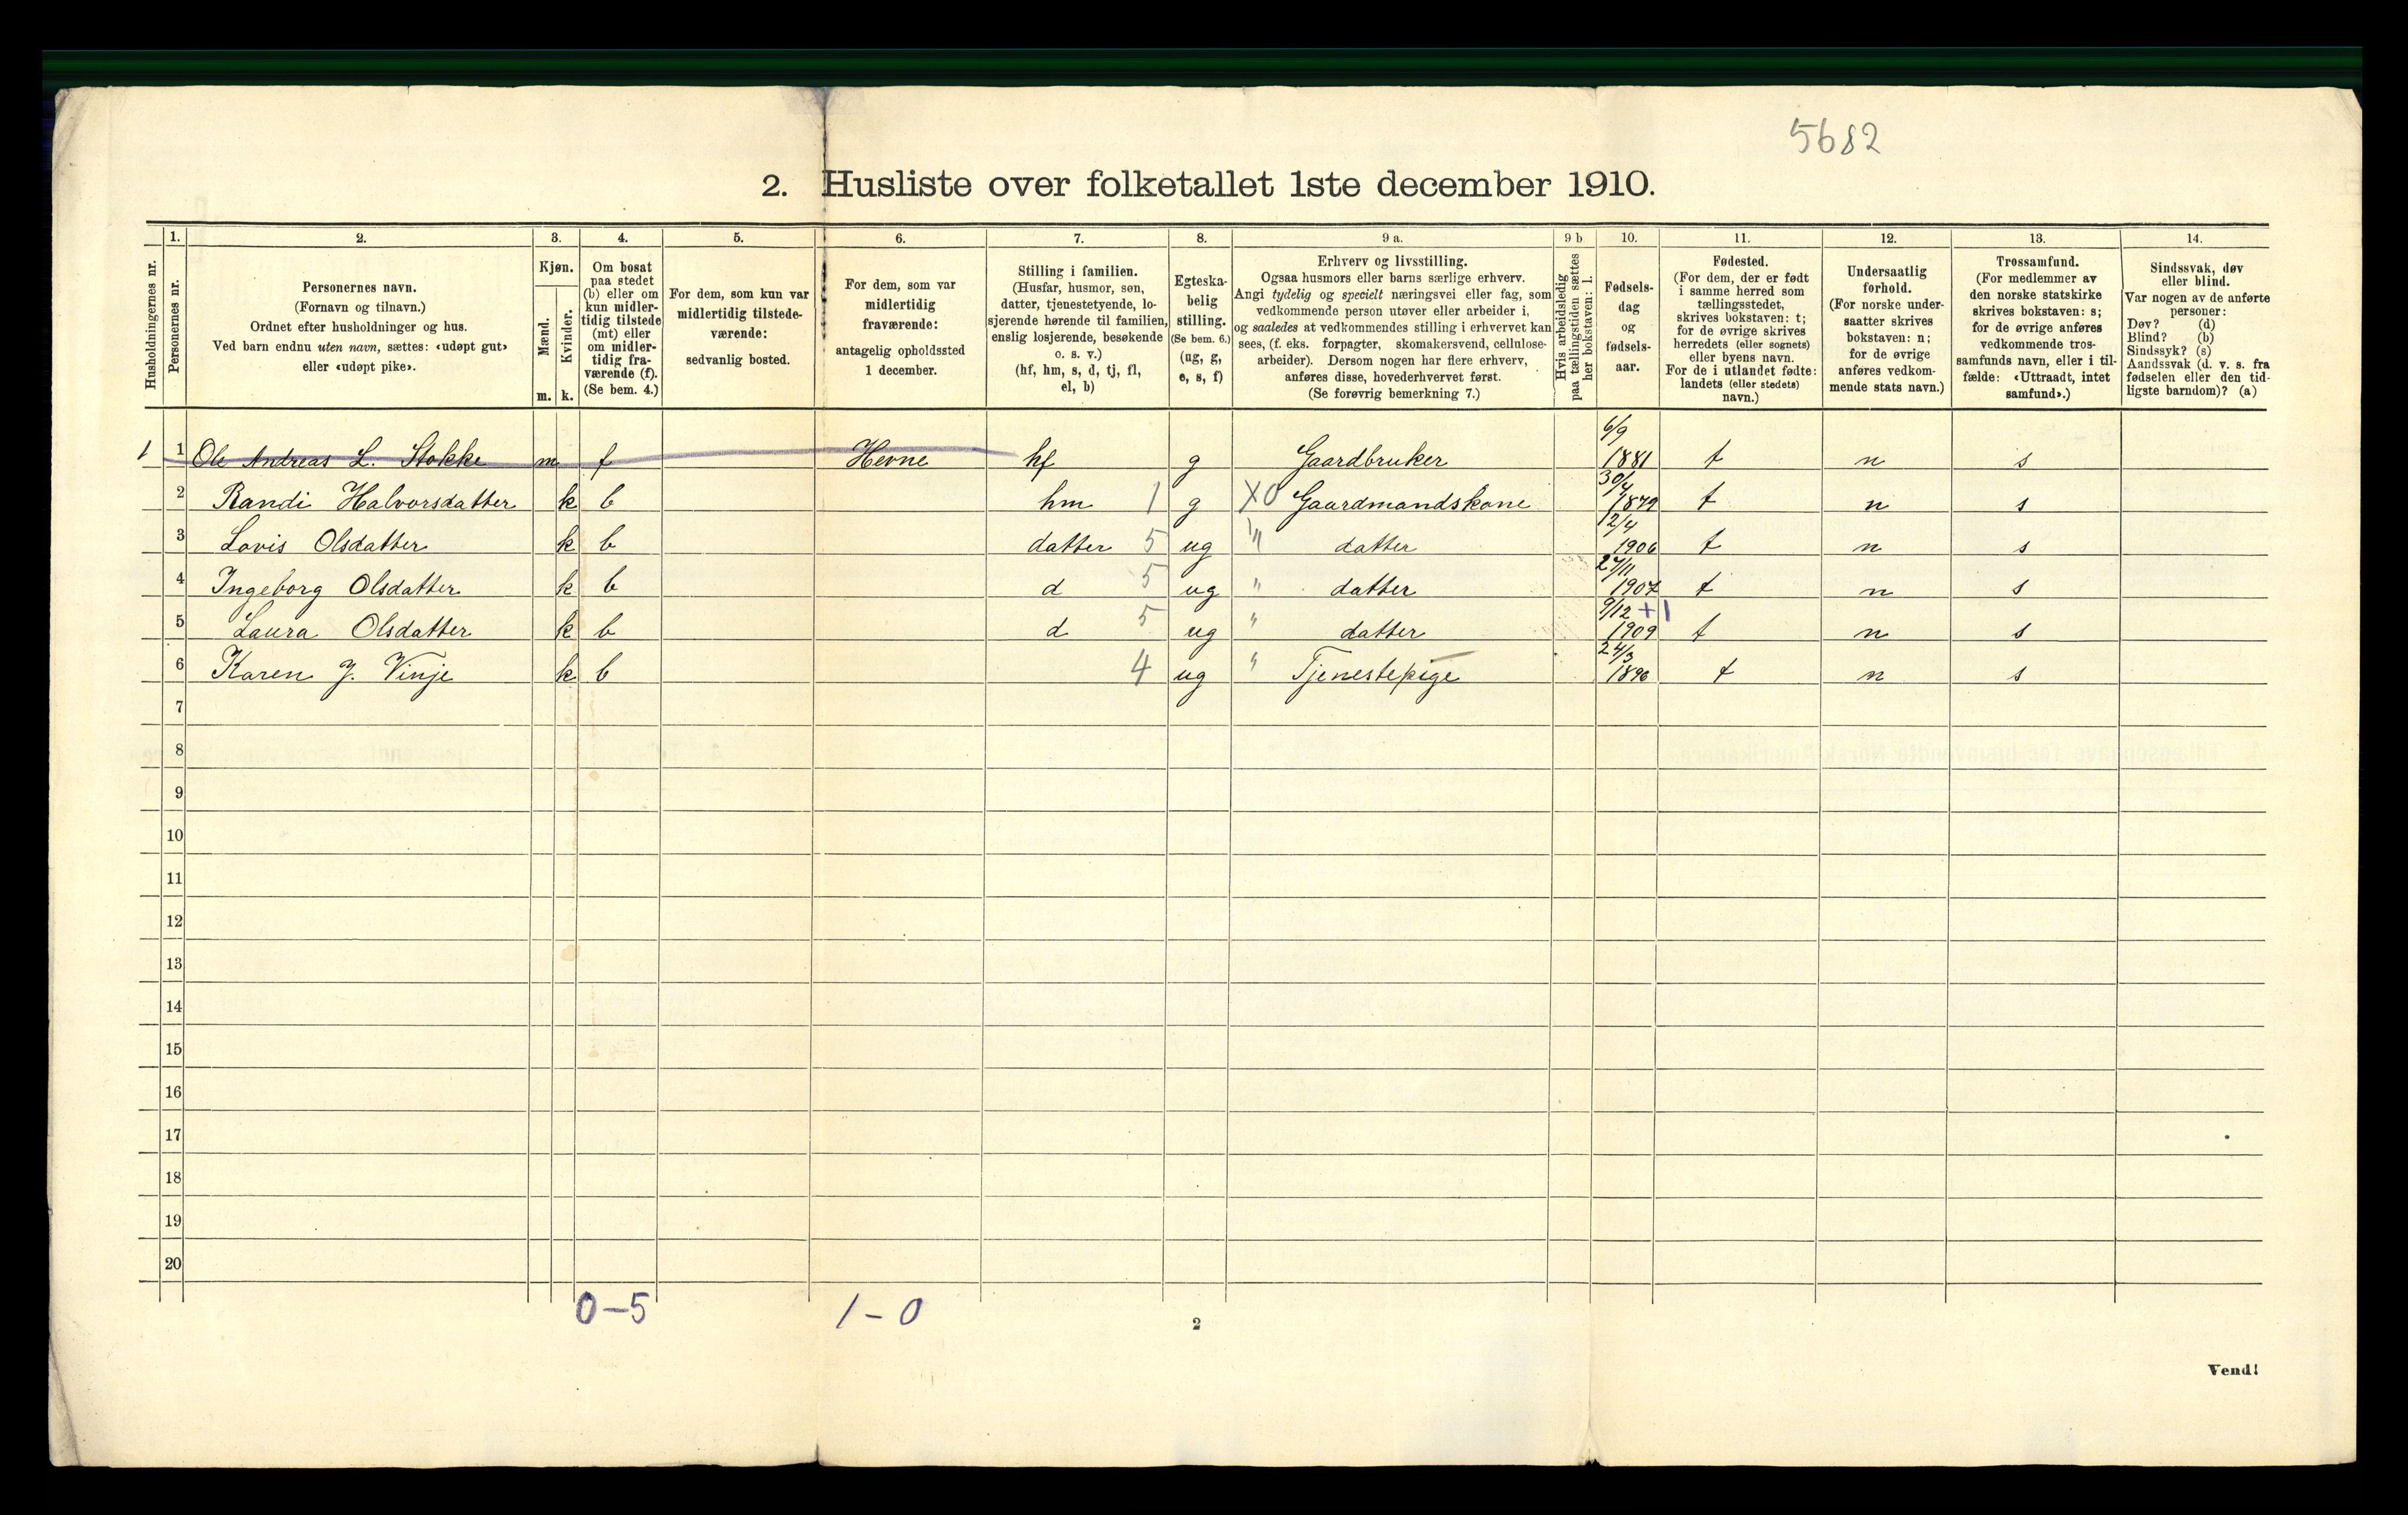 5682
2. Husliste over folketallet 1ste december 1910.
1. 2. 3. 4. 5. 6. 7. 8. 9 a. 9 b 10. 11. 12. 13. 14.
Husholdningernes nr.
Personernes nr.
Personernes navn.
(Fornavn og tilnavn.)
Ordnet efter husholdninger og hus.
Ved barn endnu uten navn, sættes: «udøpt gut»
eller «udøpt pike».
Kjøn.
Mænd.
Kvinder.
m. k.
Om bosat
paa stedet
(b) eller om
kun midler-
tidig tilstede
(mt) eller
om midler-
tidig fra-
værende (f).
(Se bem. 4.)
For dem, som kun var
midlertidig tilstede-
værende:
sedvanlig bosted.
For dem, som var
midlertidig
fraværende:
antagelig opholdssted
1 december.
Stilling i familien.
(Husfar, husmor, søn,
datter, tjenestetyende, lo-
sjerende hørende til familien,
enslig losjerende, besøkende
o. s. v.)
(hf, hm, s, d, tj, fl,
el, b)
Egteska-
belig
stilling.
(Se bem. 6.)
(ug, g,
e, s, f)
Erhverv og livsstilling.
Ogsaa husmors eller barns særlige erhverv.
Angi tydelig og specielt næringsvei eller fag, som
vedkommende person utøver eller arbeider i,
og saaledes at vedkommendes stilling i erhvervet kan
sees, (f. eks. forpagter, skomakersvend, cellulose-
arbeider). Dersom nogen har flere erhverv,
anføres disse, hovederhvervet først.
(Se forøvrig bemerkning 7.)
Hvis arbeidsledig
paa tællingstiden sættes
her bokstaven: l.
Fødsels-
dag
og
fødsels-
aar.
Fødested.
(For dem, der er født
i samme herred som
tællingsstedet,
skrives bokstaven: t;
for de øvrige skrives
herredets (eller sognets)
eller byens navn.
For de i utlandet fødte:
landets (eller stedets)
navn.)
Undersaatlig
forhold.
(For norske under-
saatter skrives
bokstaven: n;
for de øvrige
anføres vedkom-
mende stats navn.)
Trossamfund.
(For medlemmer av
den norske statskirke
skrives bokstaven: s;
for de øvrige anføres
vedkommende tros-
samfunds navn, eller i til-
fælde: «Uttraadt, intet
samfund».)
Sindssvak, døv
eller blind.
Var nogen av de anførte
personer:
Døv? (d)
Blind? (b)
Sindssyk? (s)
Aandssvak (d. v. s. fra
fødselen eller den tid-
ligste barndom)? (a)
1 1 Ole Andreas L. Stokke m f Hevne hf g Gaardbruker 6/9 1881 t n s
2 Randi Halvorsdatter k b hm 1 g X0 Gaardmandskone 30/4 1879 t n s
3 Lovis Olsdatter k b datter 5 ug " datter 12/4 1906 t n s
4 Ingeborg Olsdatter k b d 5 ug " datter 27/11 1907 t n s
5 Laura Olsdatter k b d 5 ug " datter 9/12 +1 1909 t n s
6 Karen J. Vinje k b 4 ug " Tjenestepige 24/3 1896 t n s
7
8
9
10
11
12
13
14
15
16
17
18
19
20
0-5 1-0
2
Vend!